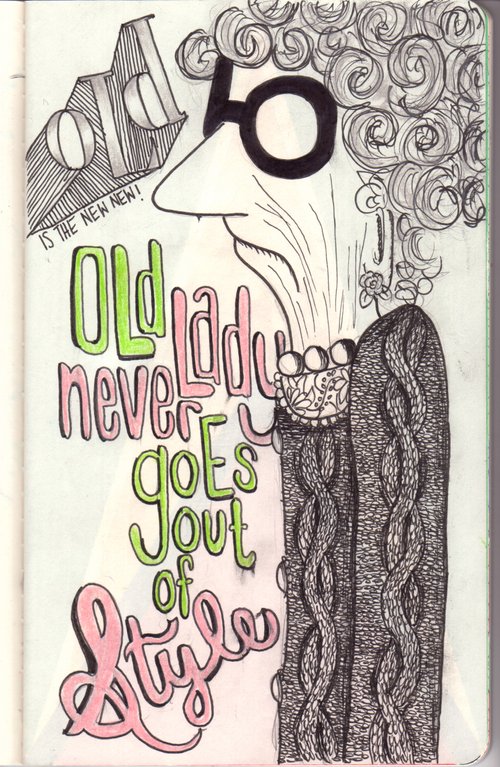 old
IS THE NEW NEW!
OLd
Lady
never
goEs
out
of
Style